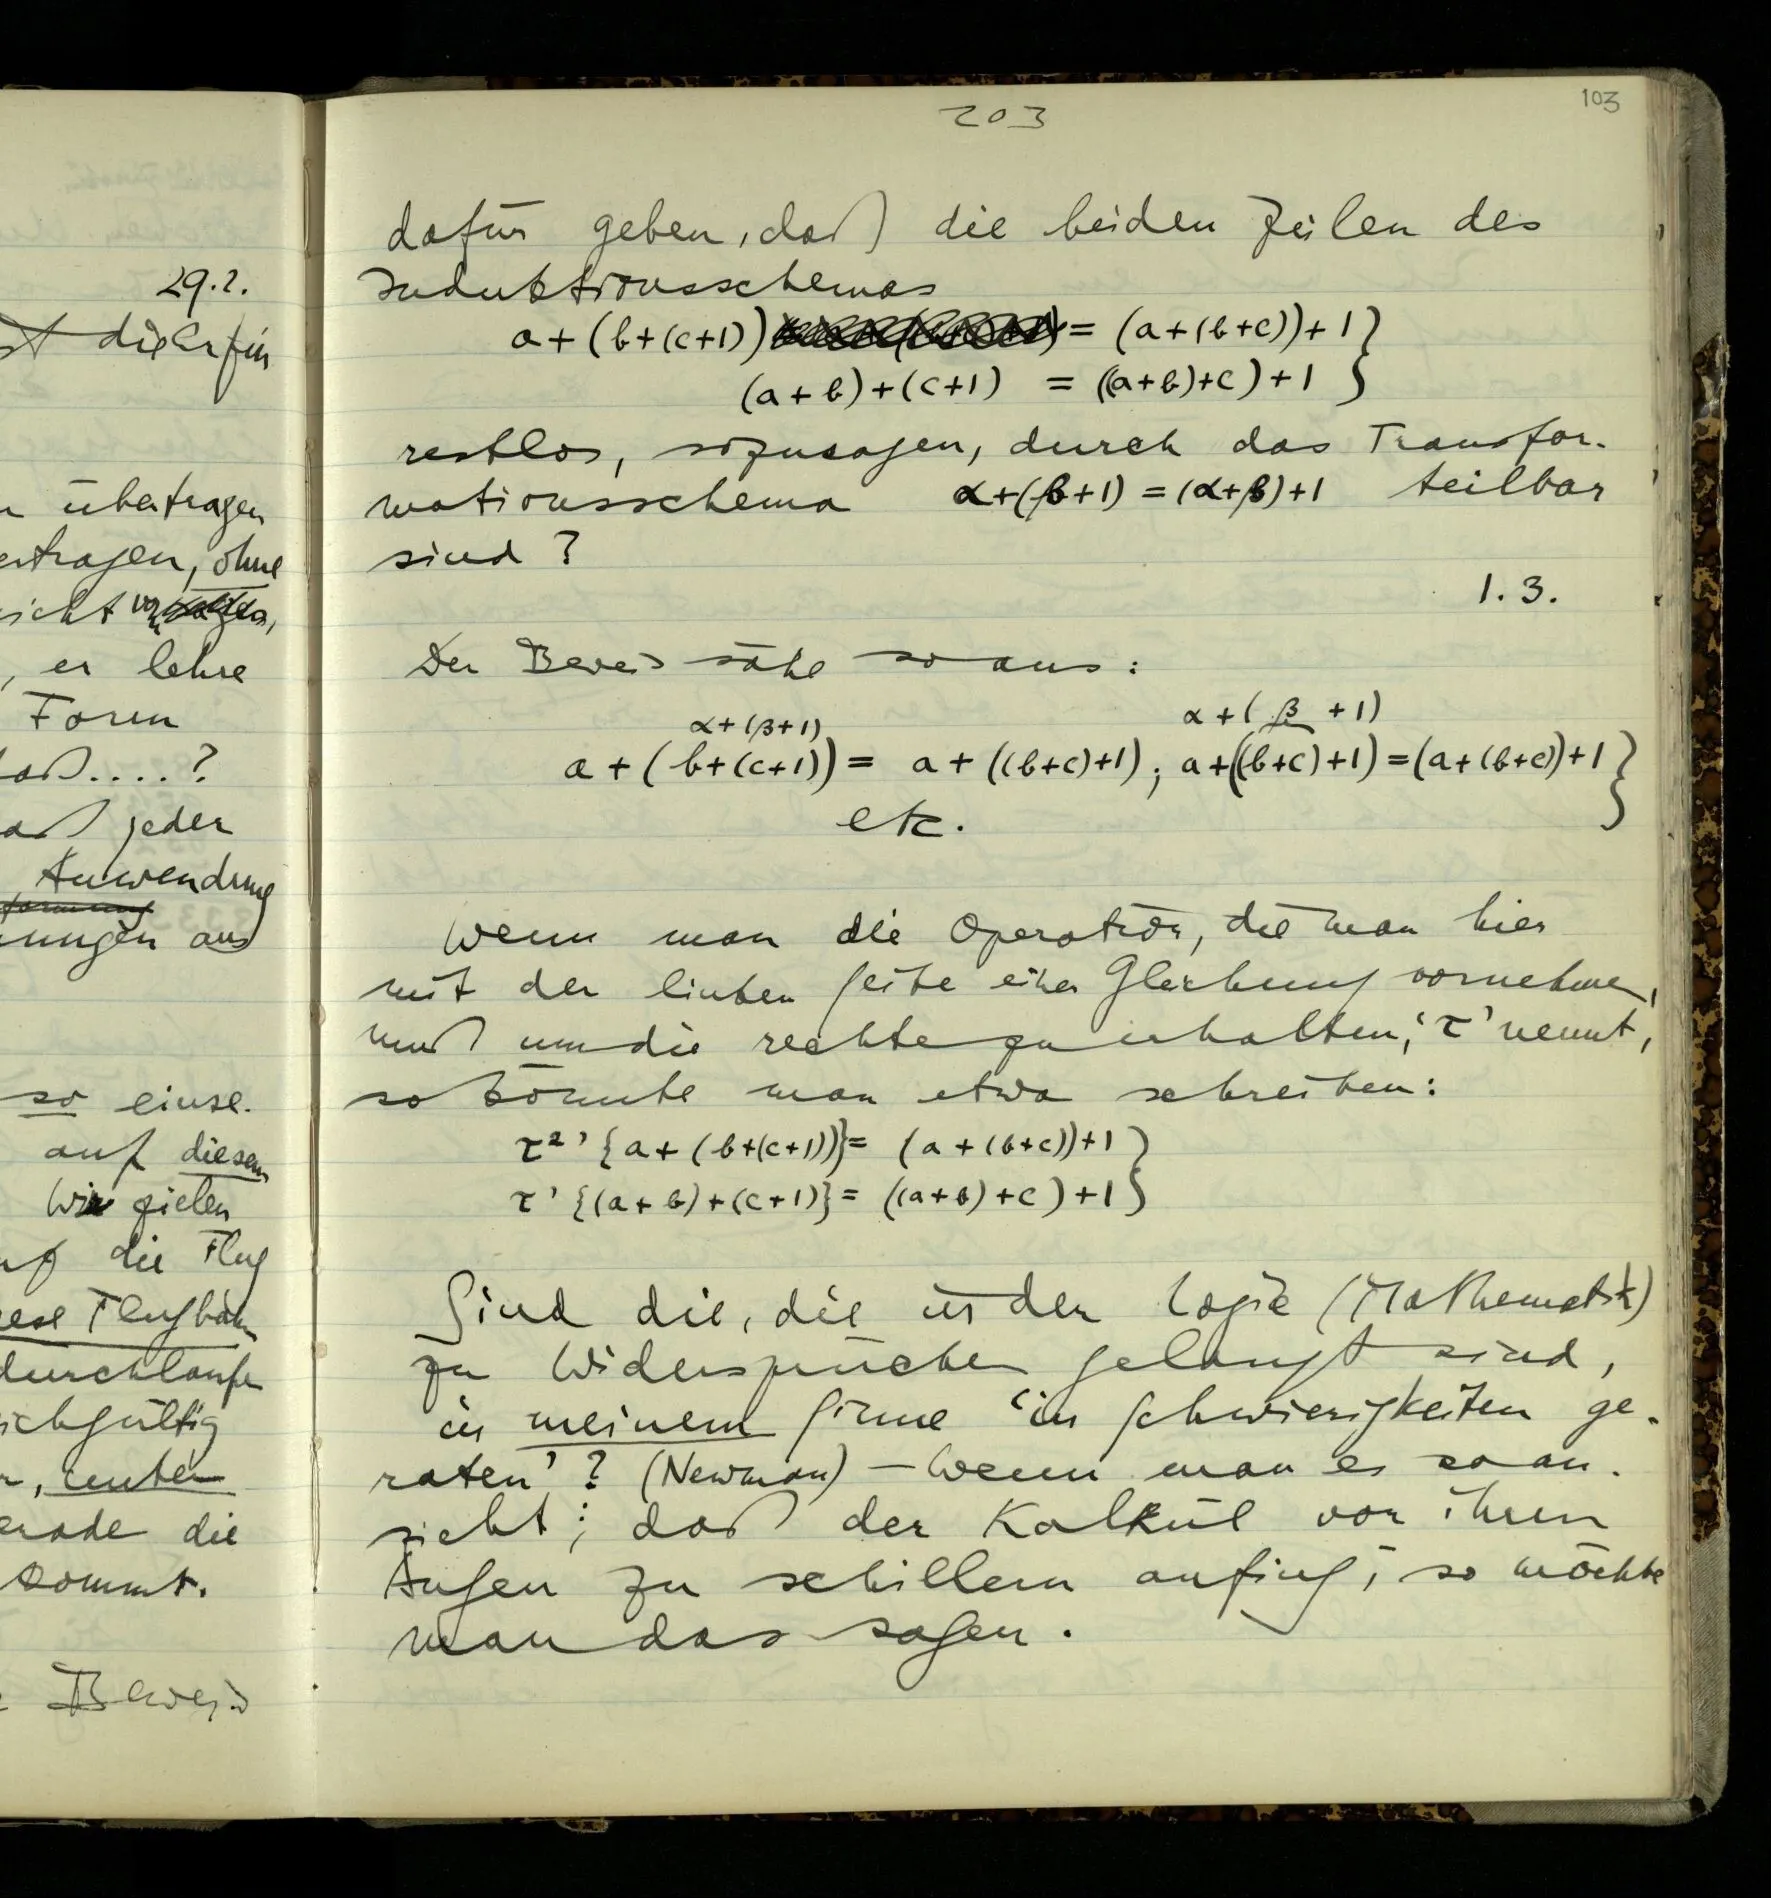 29.2.
übertragen
ertragen, ohne
nicht
, er lehre
Form
daß....?
daß jeder
Anwendung
nungen aus
so einse-
auf diesem
Wir zielen
auf die Flug
diese Flugbahn
durchlaufe
gleichgültig
unter
gerade die
kommt.
Beweis
203
103
dafür geben, daß die beiden Zeilen des
Induktionsschemas
a+(b+(c+1)) = (a+(b+c))+1 }
(a+b)+(c+1) = ((a+b)+c)+1 }
restlos, sozusagen, durch das Transfor-
mationsschema α+(β+1) = (α+β)+1 teilbar
sind?
1.3.
Der Beweis sähe so aus:
α+(β+1) α+(β +1)
a+(b+(c+1)) = a+((b+c)+1); a+((b+c)+1) = (a+(b+c))+1 }
etc.
Wenn man die Operation, die man hier
mit der linken Seite einer Gleichung vornehmen,
muß um die rechte zu erhalten, ‘τ’ nennt,
so könnte man etwa schreiben:
τ²’{a+(b+(c+1))} = (a+(b+c))+1 }
τ’{(a+b)+(c+1)} = ((a+b)+c)+1 }
Sind die, die in der Logik (Mathematik)
zu Widersprüchen gelangt sind,
in meinem Sinne ‘in Schwierigkeiten ge-
raten’? (Newman) – Wenn man es so an-
sieht; daß der Kalkül vor ihren
Augen zu schillern anfing; so möchte
man das sagen.